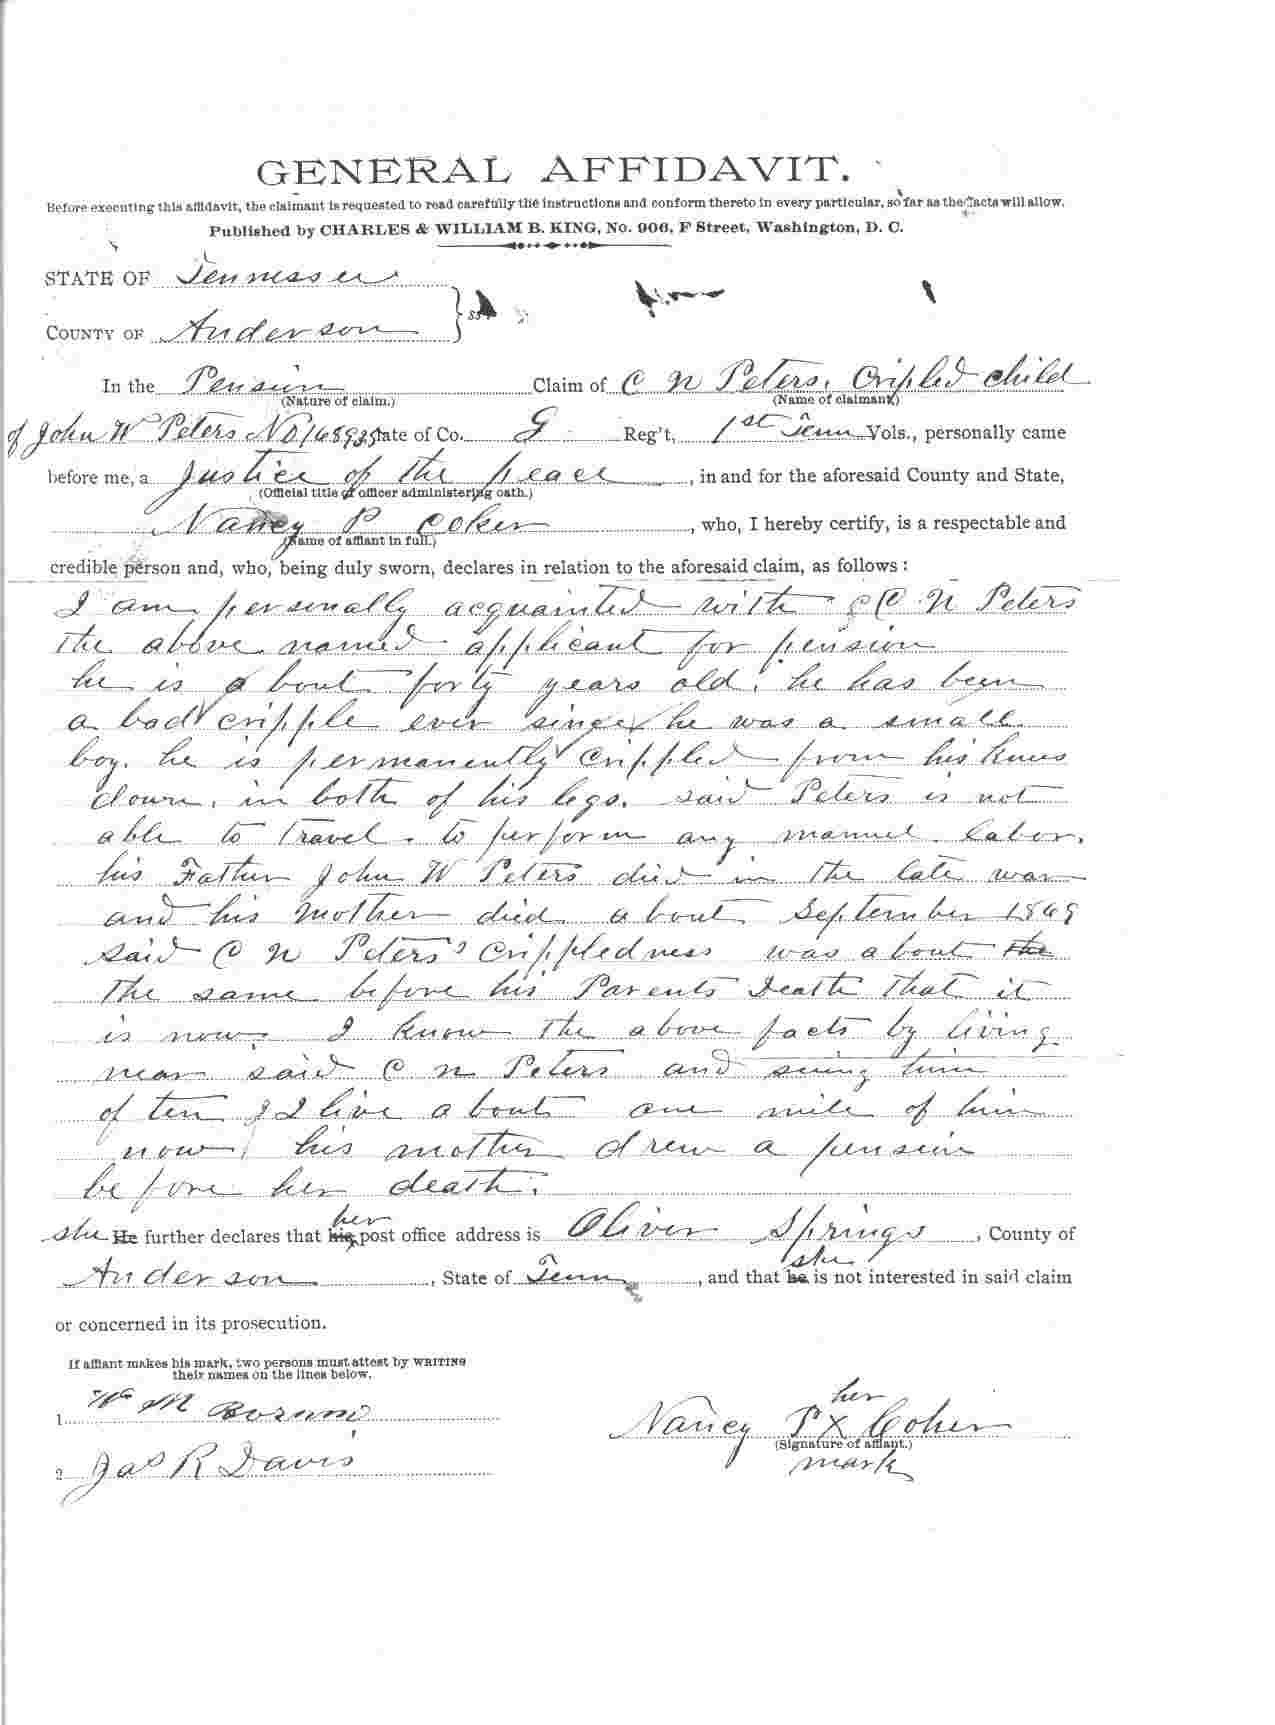 GENERAL AFFIDAVIT.
Before executing this affidavit, the claimant is requested to read carefully the instructions and conform thereto in every particular, so far as the facts will allow.
Published by CHARLES & WILLIAM B. KING, No. 906, F Street, Washington, D. C.
STATE OF Tennessee
COUNTY OF Anderson } ss
In the Pension Claim of C N Peters, Cripled child
(Nature of claim.) (Name of claimant)
of John W Peters No 168935 late of Co. G Reg't, 1st Tenn Vols., personally came
before me, a Justice of the peace, in and for the aforesaid County and State,
(Official title of officer administering oath.)
Nancy P Coker, who, I hereby certify, is a respectable and
(Name of affiant in full.)
credible person and, who, being duly sworn, declares in relation to the aforesaid claim, as follows:
I am personally acquainted with C N Peters
the above named applicant for pension
he is about forty years old. he has been
a bad cripple ever since he was a small
boy. he is permanently crippled from his knees
down, in both of his legs. said Peters is not
able to travel. to perform any manuel labor.
his Father John W Peters died in the late war
and his mother died about September 1869
said C N Peters' crippledness was about the
the same before his Parents Death that it
is now. I know the above facts by living
near said C N Peters and seing him
often I live about one mile of him
now his mother drew a pension
before her death.
she He further declares that his her post office address is Oliver Springs, County of
Anderson, State of Tenn, and that he she is not interested in said claim
or concerned in its prosecution.
If affiant makes his mark, two persons must attest by WRITING
their names on the lines below.
1 Wm M
2 Jas R Davis
her
Nancy P X Coker
(Signature of affiant.)
mark